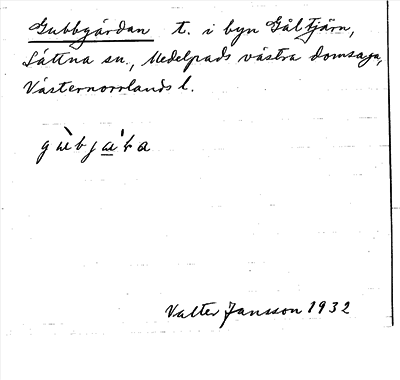 Gubbgårdan t. i byn Gåltjärn,
Sättna sn., Medelpads västra domsaga,
Västernorrlands l.
Valter Jansson 1932